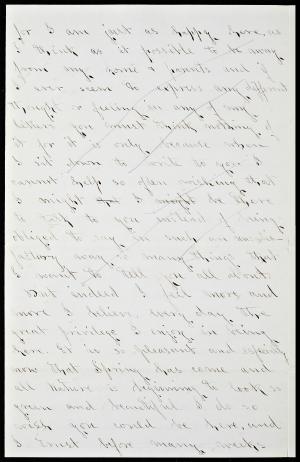 for I am just as happy here as
I think as it possible to be away
from my home & parents and if
I ever seem to express any different
thought or feeling in any of my
letters you must think nothing of
it for it is only because when
I sit down to write to you I
cannot help so often wishing that
I might be there
to talk to you instead of being
obliged to say in such an unsatis-
factory way so many things that
I want to tell you all about.
But indeed I feel more and
more I believe every day the
great privilege I enjoy in being
here. It is so pleasant and especially
now that Spring has come and
all nature is beginning to look so
green and beautiful. I do so
wish you could be here, and
I trust before many weeks